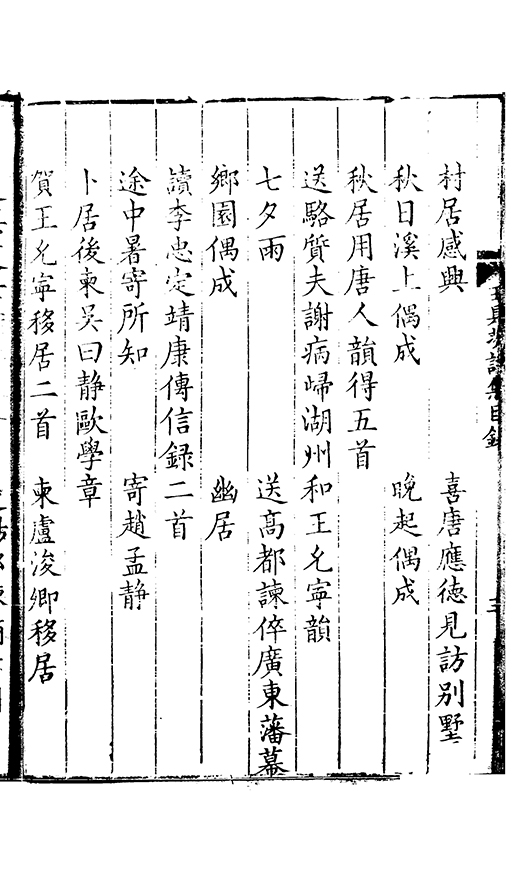 村居感興　喜唐應德見訪別墅
秋日溪上偶成　晚起偶成
秋居用唐人韻得五首
送駱質夫謝病歸湖州和王允寧韻
七夕雨　送高都諫倅廣東藩幕
鄉園偶成　幽居
讀李忠定靖康傳信録二首
途中暑寄所知　寄趙孟静
卜居後柬吳曰静歐學章
賀王允寧移居二首　柬盧浚卿移居